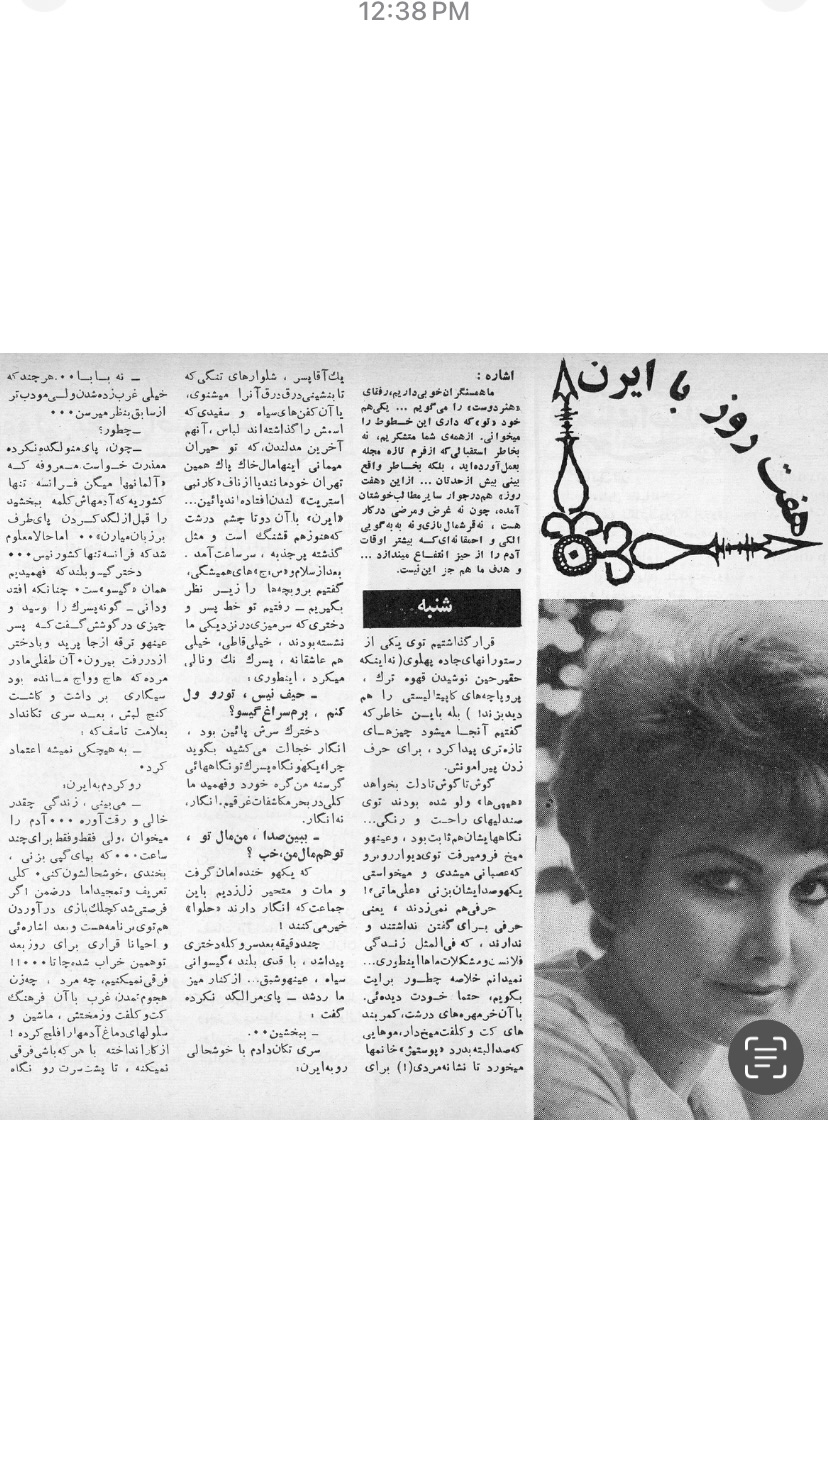 12:38 PM
هفت روز با ایرن
اشاره :
ما همسنگران خوبی داریم، رفقای
«هنردوست» را می‌گویم ... یکی هم
خود «تو» که داری این خطوط را
میخوانی. از همه‌ی شما متشکریم، نه
بخاطر استقبالی که از فرم تازه مجله
بعمل آورده‌اید ، بلکه بخاطر واقع
بینی بیش از حدتان ... از این «هفت
روز» هم در جوار سایر مطالب خوشتان
آمده، چون نه غرض و مرضی در کار
هست ، نه قر شمال بازی و نه به به گویی
الکی و احمقانه‌ای که بیشتر اوقات
آدم را از حیز انتفاع میندازد ...
و هدف ما هم جز این نیست.
شنبه
قرار گذاشتیم توی یکی از
رستورانهای جاده پهلوی( نه اینکه
حقیر حین نوشیدن قهوه ترک ،
پر و پاچه‌های کاپیتالیستی را هم
دید بزند! ) بله باین خاطر که
گفتیم آنجا میشود چیزهای
تازه‌تری پیدا کرد ، برای حرف
زدن پیرامونش.
گوش تا گوش تا دلت بخواهد
«هیپی‌ها» ولو شده بودند توی
صندلیهای راحت و رنگی...
نگاههایشان هم ثابت بود ، و عینهو
میخ فرو میرفت توی دیوار روبرو
که عصبانی میشدی و میخواستی
یکهو صدایشان بزنی «علی ماتی»!
حرفی هم نمی‌زدند ، یعنی
حرفی برای گفتن نداشتند و
ندارند ، که فی‌المثل زندگی
فلانست و مشکلات ماها اینطوری...
نمیدانم خلاصه چطور برایت
بگویم، حتما خودت دیده‌ئی.
با آن خرمهره‌های درشت، کمر بند
های کت و کلفت میخ دار، موهایی
که صد البته بدرد «پوستیژ» خانمها
میخورد تا نشانه مردی(!) برای
یک آقا پسر ، شلوارهای تنگی که
تا بنشینی درق درق آنرا میشنوی،
یا آن کفن‌های سیاه و سفیدی که
اسمش را گذاشته‌اند لباس ، آنهم
آخرین مدلندن، که تو حیران
میمانی اینها مال خاک پاک همین
تهران خودمانند یا از ناف «کارنبی
استریت» لندن افتاده‌اند پائین...
«ایرن» با آن دو تا چشم درشت
که هنوزهم قشنگ است و مثل
گذشته پر جذبه ، سر ساعت آمد .
بعد از سلام و «مرج»های همیشگی،
گفتیم بر و بچه‌ها را زیر نظر
بگیریم ــ رفتیم تو خط پسر و
دختری که سر میزی در نزدیکی ما
نشسته بودند ، خیلی قاطی، خیلی
هم عاشقانه ، پسرک نک و نالی
میکرد ، اینطوری :
ــ حیف نیس ، تو رو ول
کنم ، برم سراغ گیسو؟
دخترک سرش پائین بود ،
انگار خجالت می‌کشید بگوید
چرا، یکهو نگاه پسرک تو نگاههائی
گرسنه من گره خورد و فهمید ما
کلی در بحر مکاشفات غرقیم. انگار،
نه انگار.
ــ ببین صدا ، من مال تو ،
تو هم مال من، خب ؟
که یکهو خنده امان گرفت
و مات و متحیر زل زدیم باین
جماعت که انگار دارند «حلوا»
خیر می‌کنند !
چند دقیقه بعد سر و کله دختری
پیدا شد ، با قدی بلند ، گیسوانی
سیاه ، عینهو شبق... از کنار میز
ما رد شد ــ پای مرا لگد نکرده
گفت :
ــ ببخشین...
سری تکان دادم با خوشحالی
رو به ایرن:
ــ نه بابا... هر چند که
خیلی غرب زده شدن ولی مودب تر
از سابق بنظر میرسن...
ــ چطور؟
ــ چون، پای منو لگد نکرده
معذرت خواست. معروفه که
«آلمانیها میگن فرانسه تنها
کشوریه که آدمهاش کلمه ببخشید
را قبل از لگد کردن پای طرف
بر زبان میارن»... اما حالا معلوم
شد که فرانسه تنها کشور نیس...
دختر گیسو بلند که فهمیدیم
همان «گیسو»ست. چنانکه افتد
ودانی ــ گونه پسرک را وسید و
چیزی در گوشش گفت که پسر
عینهو ترقه از جا پرید و با دختر
از در رفت بیرون. آن طفلی مادر
مرده که هاج و واج مانده بود
سیگاری بر داشت و کاشت
کنج لبش ، بعد سری تکانداد
بعلامت تاسف که :
ــ به هیچکی نمیشه اعتماد
کرد.
رو کردم به ایرن:
ــ می‌بینی ، زندگی چقدر
خالی و رقت آوره ... آدم را
میخوان ، ولی فقط و فقط برای چند
ساعت... که بیای گپی بزنی ،
بخندی ، خوشحالشون کنی. کلی
تعریف و تمجید اما درضمن اگر
فرصتی شد کچلک بازی در آوردن
هم توی برنامه هست و بعد اشاره‌ئی
و احیانا قراری برای روز بعد
تو همین خراب شده جا تا ...!!
فرقی نمیکنیم، چه مرد ، چه زن
هجوم تمدن غرب با آن فرهنگ
کت و کلفت وزمختش ، ماشین و
سلولهای دماغ آدمها را فلج کرده !
از کار انداخته با هر که باشی فرقی
نمیکنه ، تا پشت سرت رو نگاه